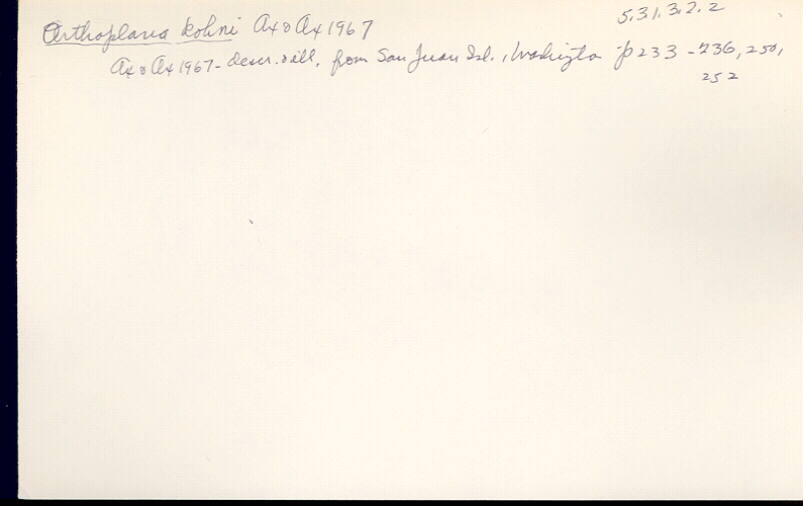 5.31.3.2.2
Orthoplana kohni Ax & Ax 1967
Ax & Ax 1967 - descr. & ill. from San Juan Isl., Washington p 233 - 236, 250,
252